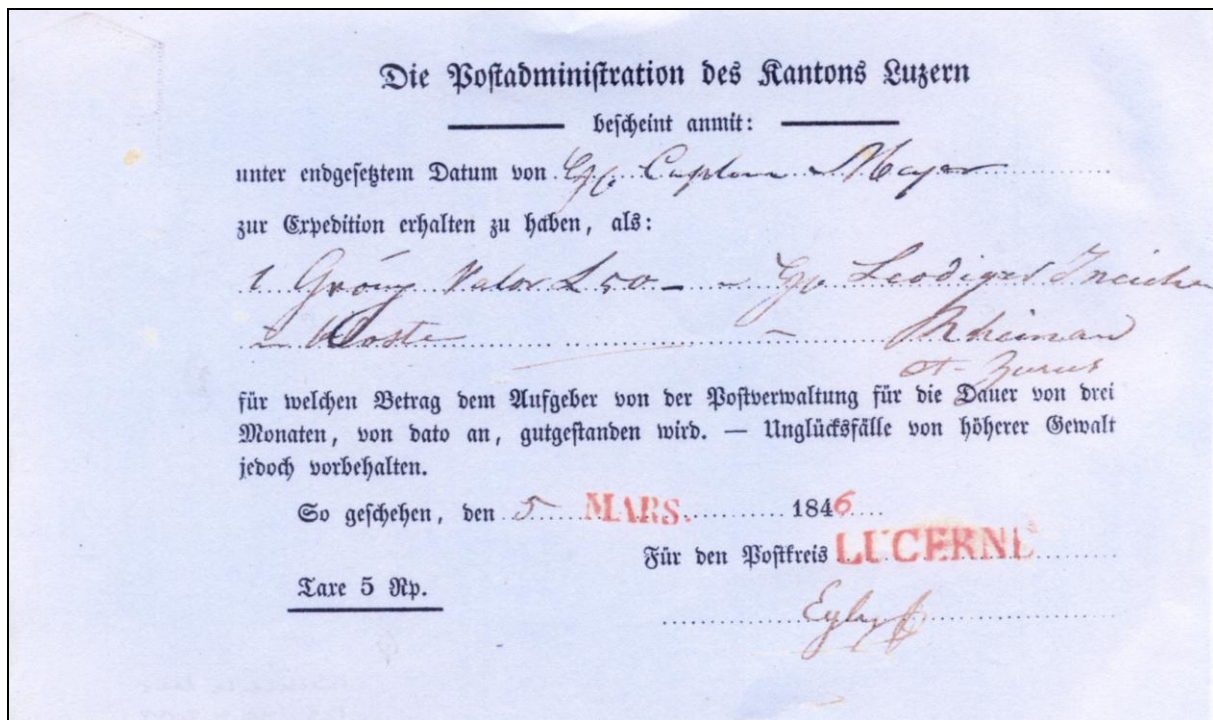 Die Postadministration des Kantons Luzern
bescheint anmit:
unter endgesetztem Datum von Caplan Mayer
zur Expedition erhalten zu haben, als:
1 Valor L 50.— Leodigar Ineichen
Rheinau
für welchen Betrag dem Aufgeber von der Postverwaltung für die Dauer von drei
Monaten, von dato an, gutgestanden wird. — Unglücksfälle von höherer Gewalt
jedoch vorbehalten.
So geschehen, den 5 MARS. 1846
Für den Postkreis LUCERNE
Taxe 5 Rp.